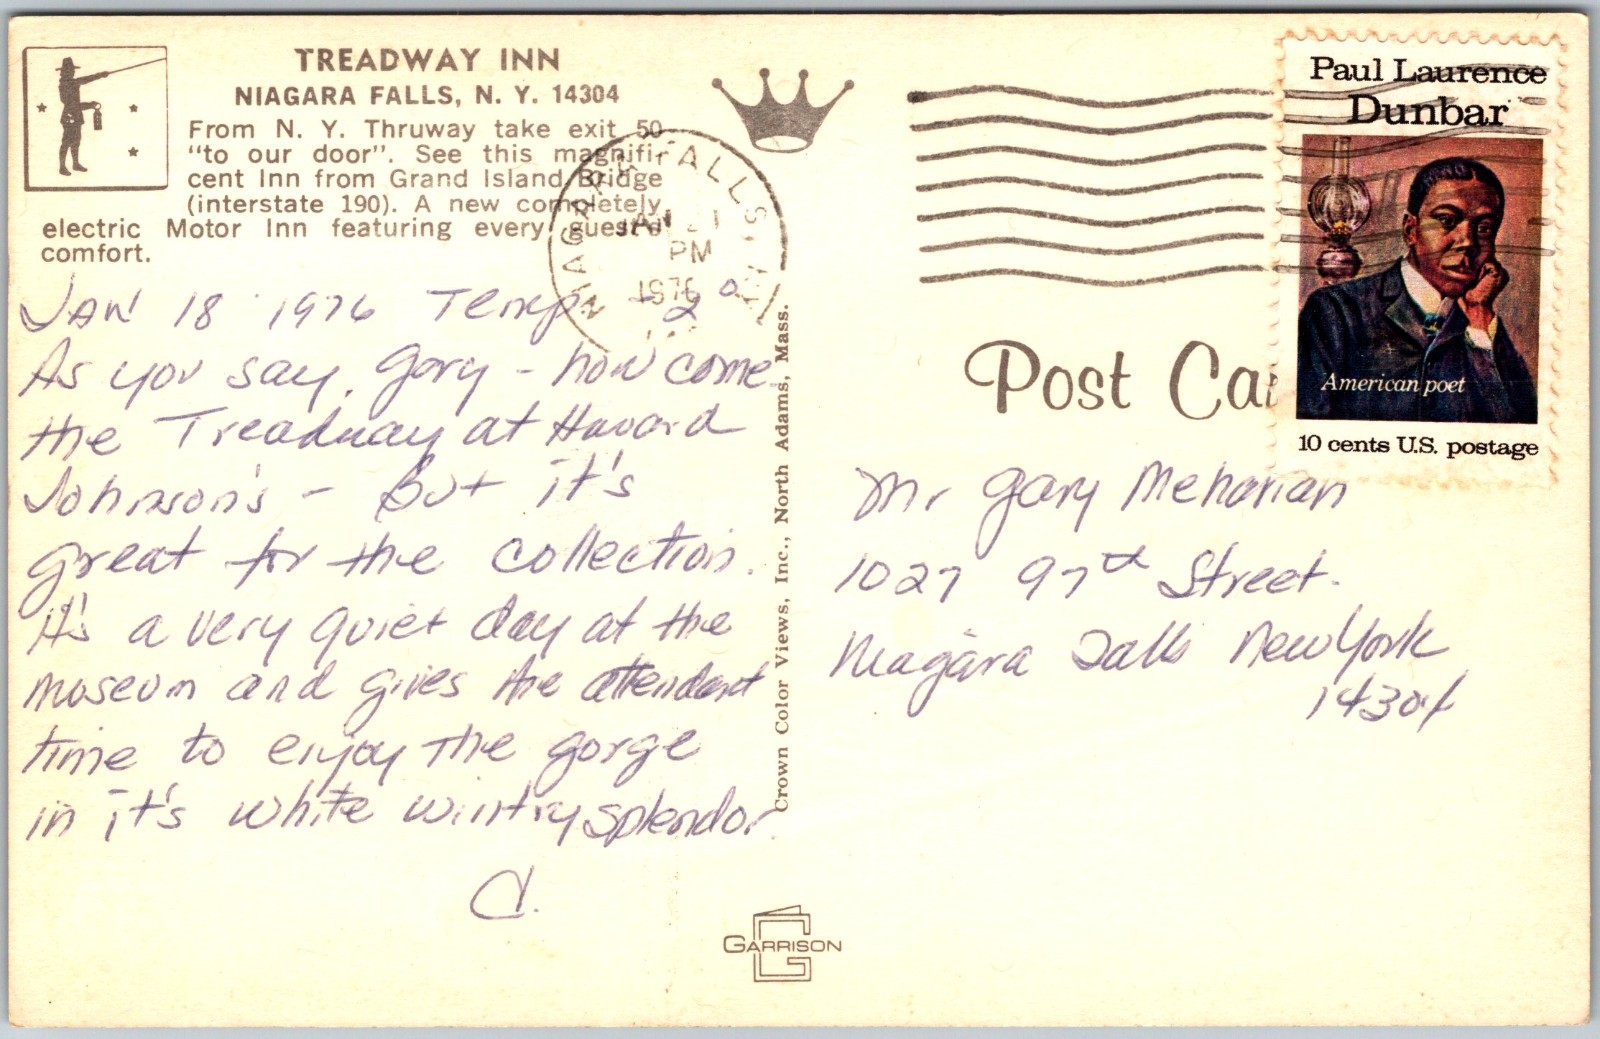 TREADWAY INN
NIAGARA FALLS, N. Y. 14304
From N. Y. Thruway take exit 50
"to our door". See this magnifi-
cent Inn from Grand Island Bridge
(interstate 190). A new completely
electric Motor Inn featuring every guest's
comfort.
NIAGARA FALLS, N.Y.
JAN 21
PM
1976
JAN 18 1976 Temp -2°
As you say, Gary - how come
the Treadway at Havard
Johnson's - But it's
great for the collection.
It's a very quiet day at the
museum and gives the attendant
time to enjoy the gorge
in it's white wintry splendor.
C.
Crown Color Views, Inc., North Adams, Mass.
GARRISON
Paul Laurence
Dunbar
American poet
10 cents U.S. postage
Post Car
Mr Gary Mehorian
1027 97th Street.
Niagara Falls New York
14304